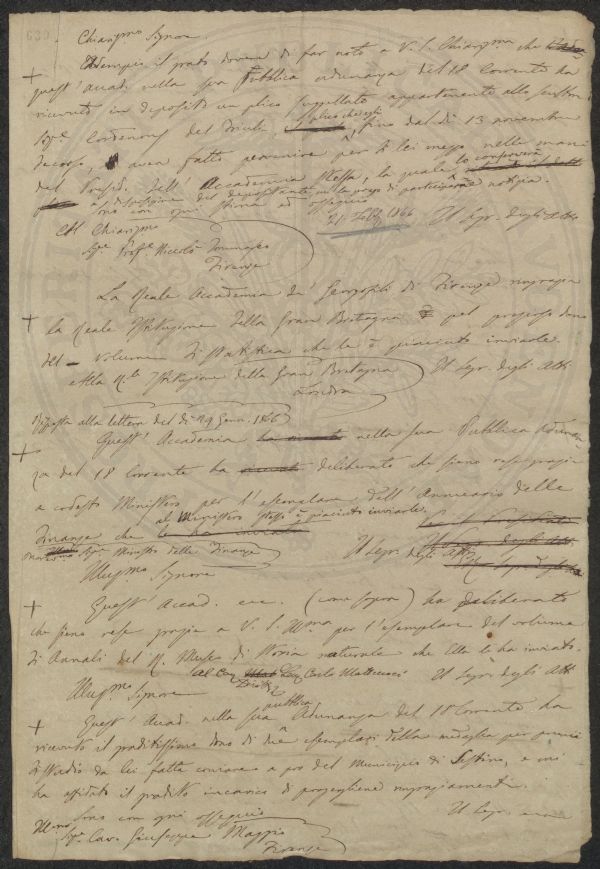 Chiarmo Signore.
Adempio il grato dovere di far noto a V. S. Chiarma che
quest' Accad. nella sua Pubblica adunanza del 18 corrente ha
ricevuto in deposito un plico suggellato appartenente allo
Sige. del il plico che egli fino dal dì 13 novembre
decorso, avea fatto pervenire per di lei mezzo nelle mani
del Presid. dell' Accademia stessa, la quale lo conserverà
a disposizione del depositante cui la prego di partecipare notizia.
Sono con ogni stima ed ossequio
21 1866 Il Segr. degli Atti
Al Chiarmo
Sige Profe Niccolò Tommaseo
Firenze
La Reale Accademia de' Georgofili di Firenze ringrazia
la Reale Istituzione della Gran Bretagna pel prezioso dono
del volume di Statistica che le è piaciuto inviarle.
Alla Rle Istituzione della Gran Bretagna Il Segr. degli Atti
Londra
Risposta alla lettera del dì 29 Genn. 1866
Quest' Accademia nella sua Pubblica adunan
za del 18 corrente ha deliberato che sieno rese grazie
a codesto Ministero per l'esemplare dell' Annuario delle
Finanze che al Ministero stesso è piaciuto inviarle.
Sige Ministro delle Finanze Il Segr. degli Atti
Illusmo Signore
Quest' Accad. ecc. (come sopra) ha deliberato
che sieno rese grazie a V. S. Illma per l'esemplare del volume
di Annali del R. Museo di Storia naturale che Ella le ha inviato.
Al Cav. Carlo Matteucci Il Segr. degli Atti
Illusmo Signore
Quest' Accad. nella sua pubblica Adunanza del 18 Corrente ha
ricevuto il graditissimo dono di due esemplari della medaglia per premi
di Stadio da lei fatta coniare a pro del Municipio di Sestino, e mi
ha affidato il gradito incarico di porgergliene ringraziamenti.
Sono con ogni ossequio
Il Segr.
Illmo Sige. Cav. Giuseppe Maggio
Firenze